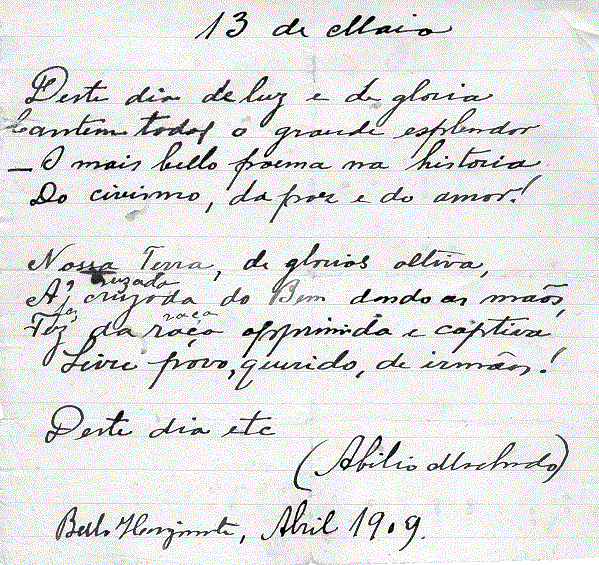 13 de Maio
Deste dia de luz e de gloria
Cantem todos o grande esplendor
— O mais bello poema na historia
Do civismo, da paz e do amor!
Nossa Terra, de glorias altiva,
cruzada
A' cruzada do Bem dando as mãos,
raça
Fez, da raça opprimida e captiva
Livre povo, querido, de irmãos!
Deste dia etc
(Abilio Machado)
Bello Horizonte, Abril 1909.